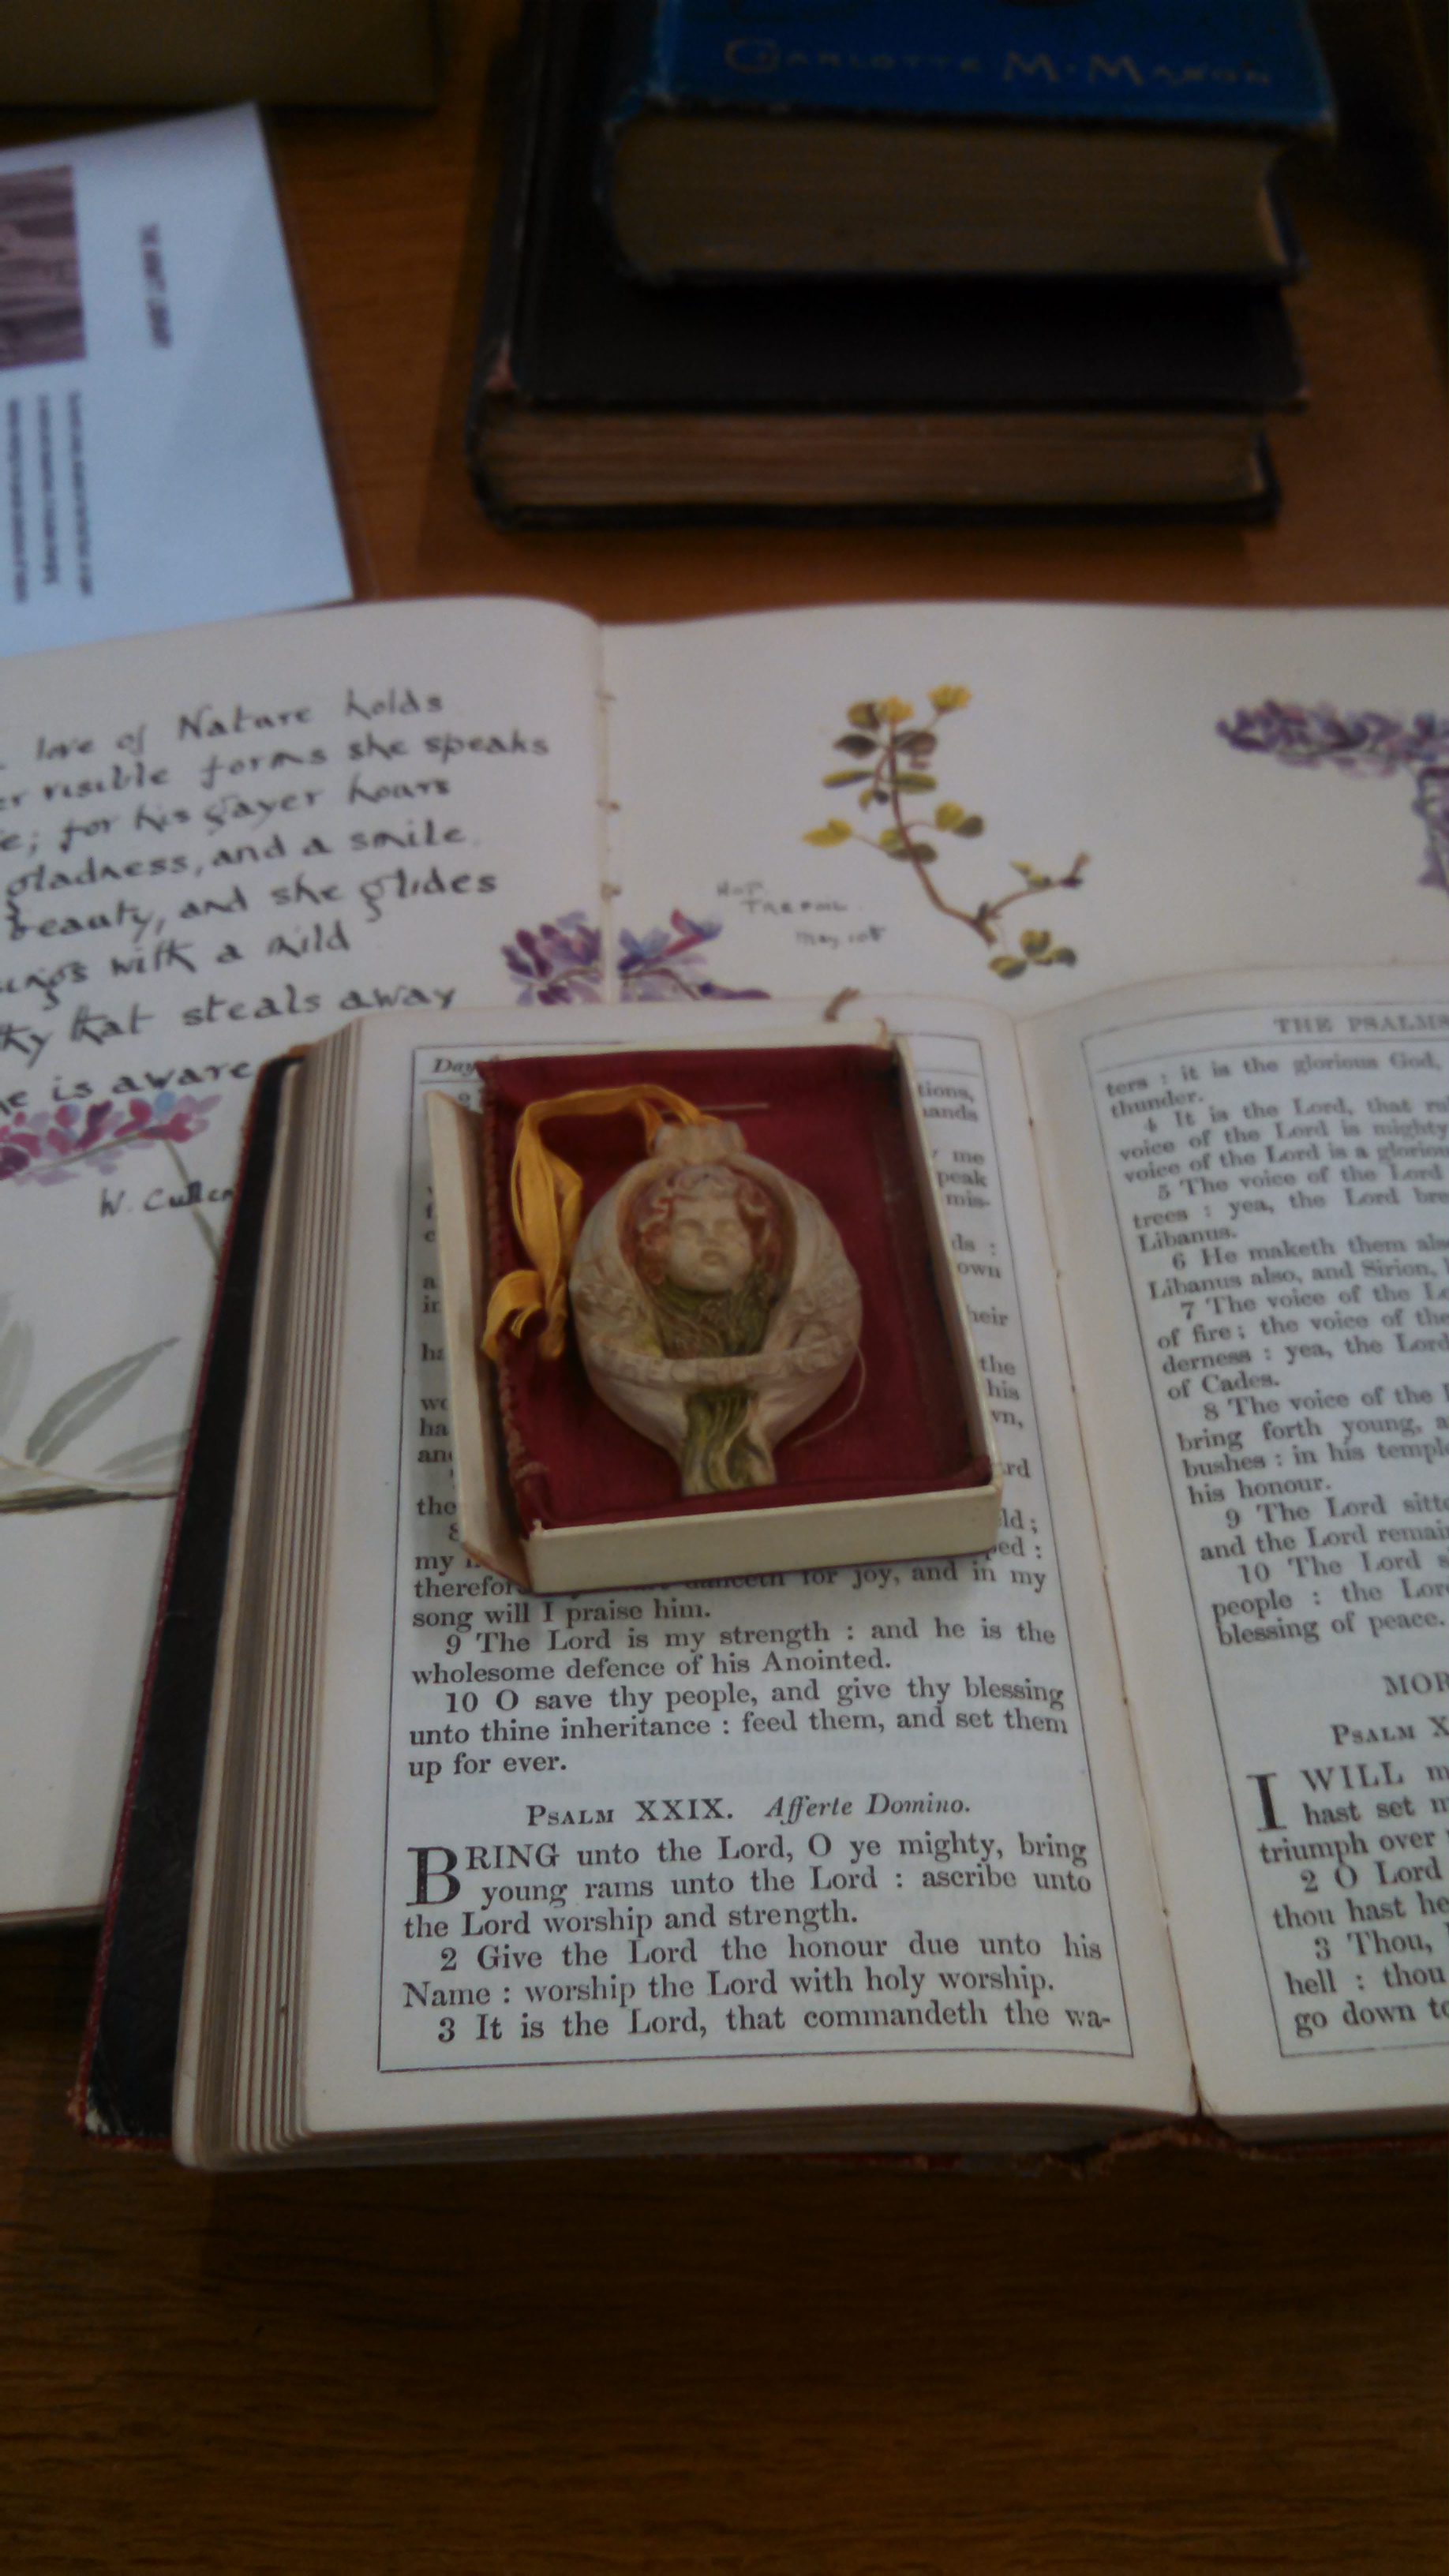 CHARLOTTE M. MASON
THE ARMITT LIBRARY
love of Nature holds
er visible forms she speaks
e; for his gayer hours
gladness, and a smile
beauty, and she glides
with a mild
thy that steals away
he is aware
W. Cullen
HOP
TREFOIL
May 10th
Day
tions,
hands
me
peak
mis-
ds :
own
heir
ha
the
his
wn,
ha
and
rd
the
ld;
my
ped :
therefor danceth for joy, and in my
song will I praise him.
9 The Lord is my strength : and he is the
wholesome defence of his Anointed.
10 O save thy people, and give thy blessing
unto thine inheritance : feed them, and set them
up for ever.
PSALM XXIX. Afferte Domino.
BRING unto the Lord, O ye mighty, bring
young rams unto the Lord : ascribe unto
the Lord worship and strength.
2 Give the Lord the honour due unto his
Name : worship the Lord with holy worship.
3 It is the Lord, that commandeth the wa-
THE PSALMS
ters : it is the glorious God,
thunder.
4 It is the Lord, that ru
voice of the Lord is mighty
voice of the Lord is a glorious
5 The voice of the Lord
trees : yea, the Lord bre
Libanus.
6 He maketh them also
Libanus also, and Sirion,
7 The voice of the Lo
of fire; the voice of the
derness : yea, the Lord
of Cades.
8 The voice of the
bring forth young, a
bushes : in his temple
his honour.
9 The Lord sitte
and the Lord remain
10 The Lord s
people : the Lor
blessing of peace.
MOR
PSALM X
I WILL m
hast set m
triumph over
2 O Lord
thou hast he
3 Thou,
hell : thou
go down to